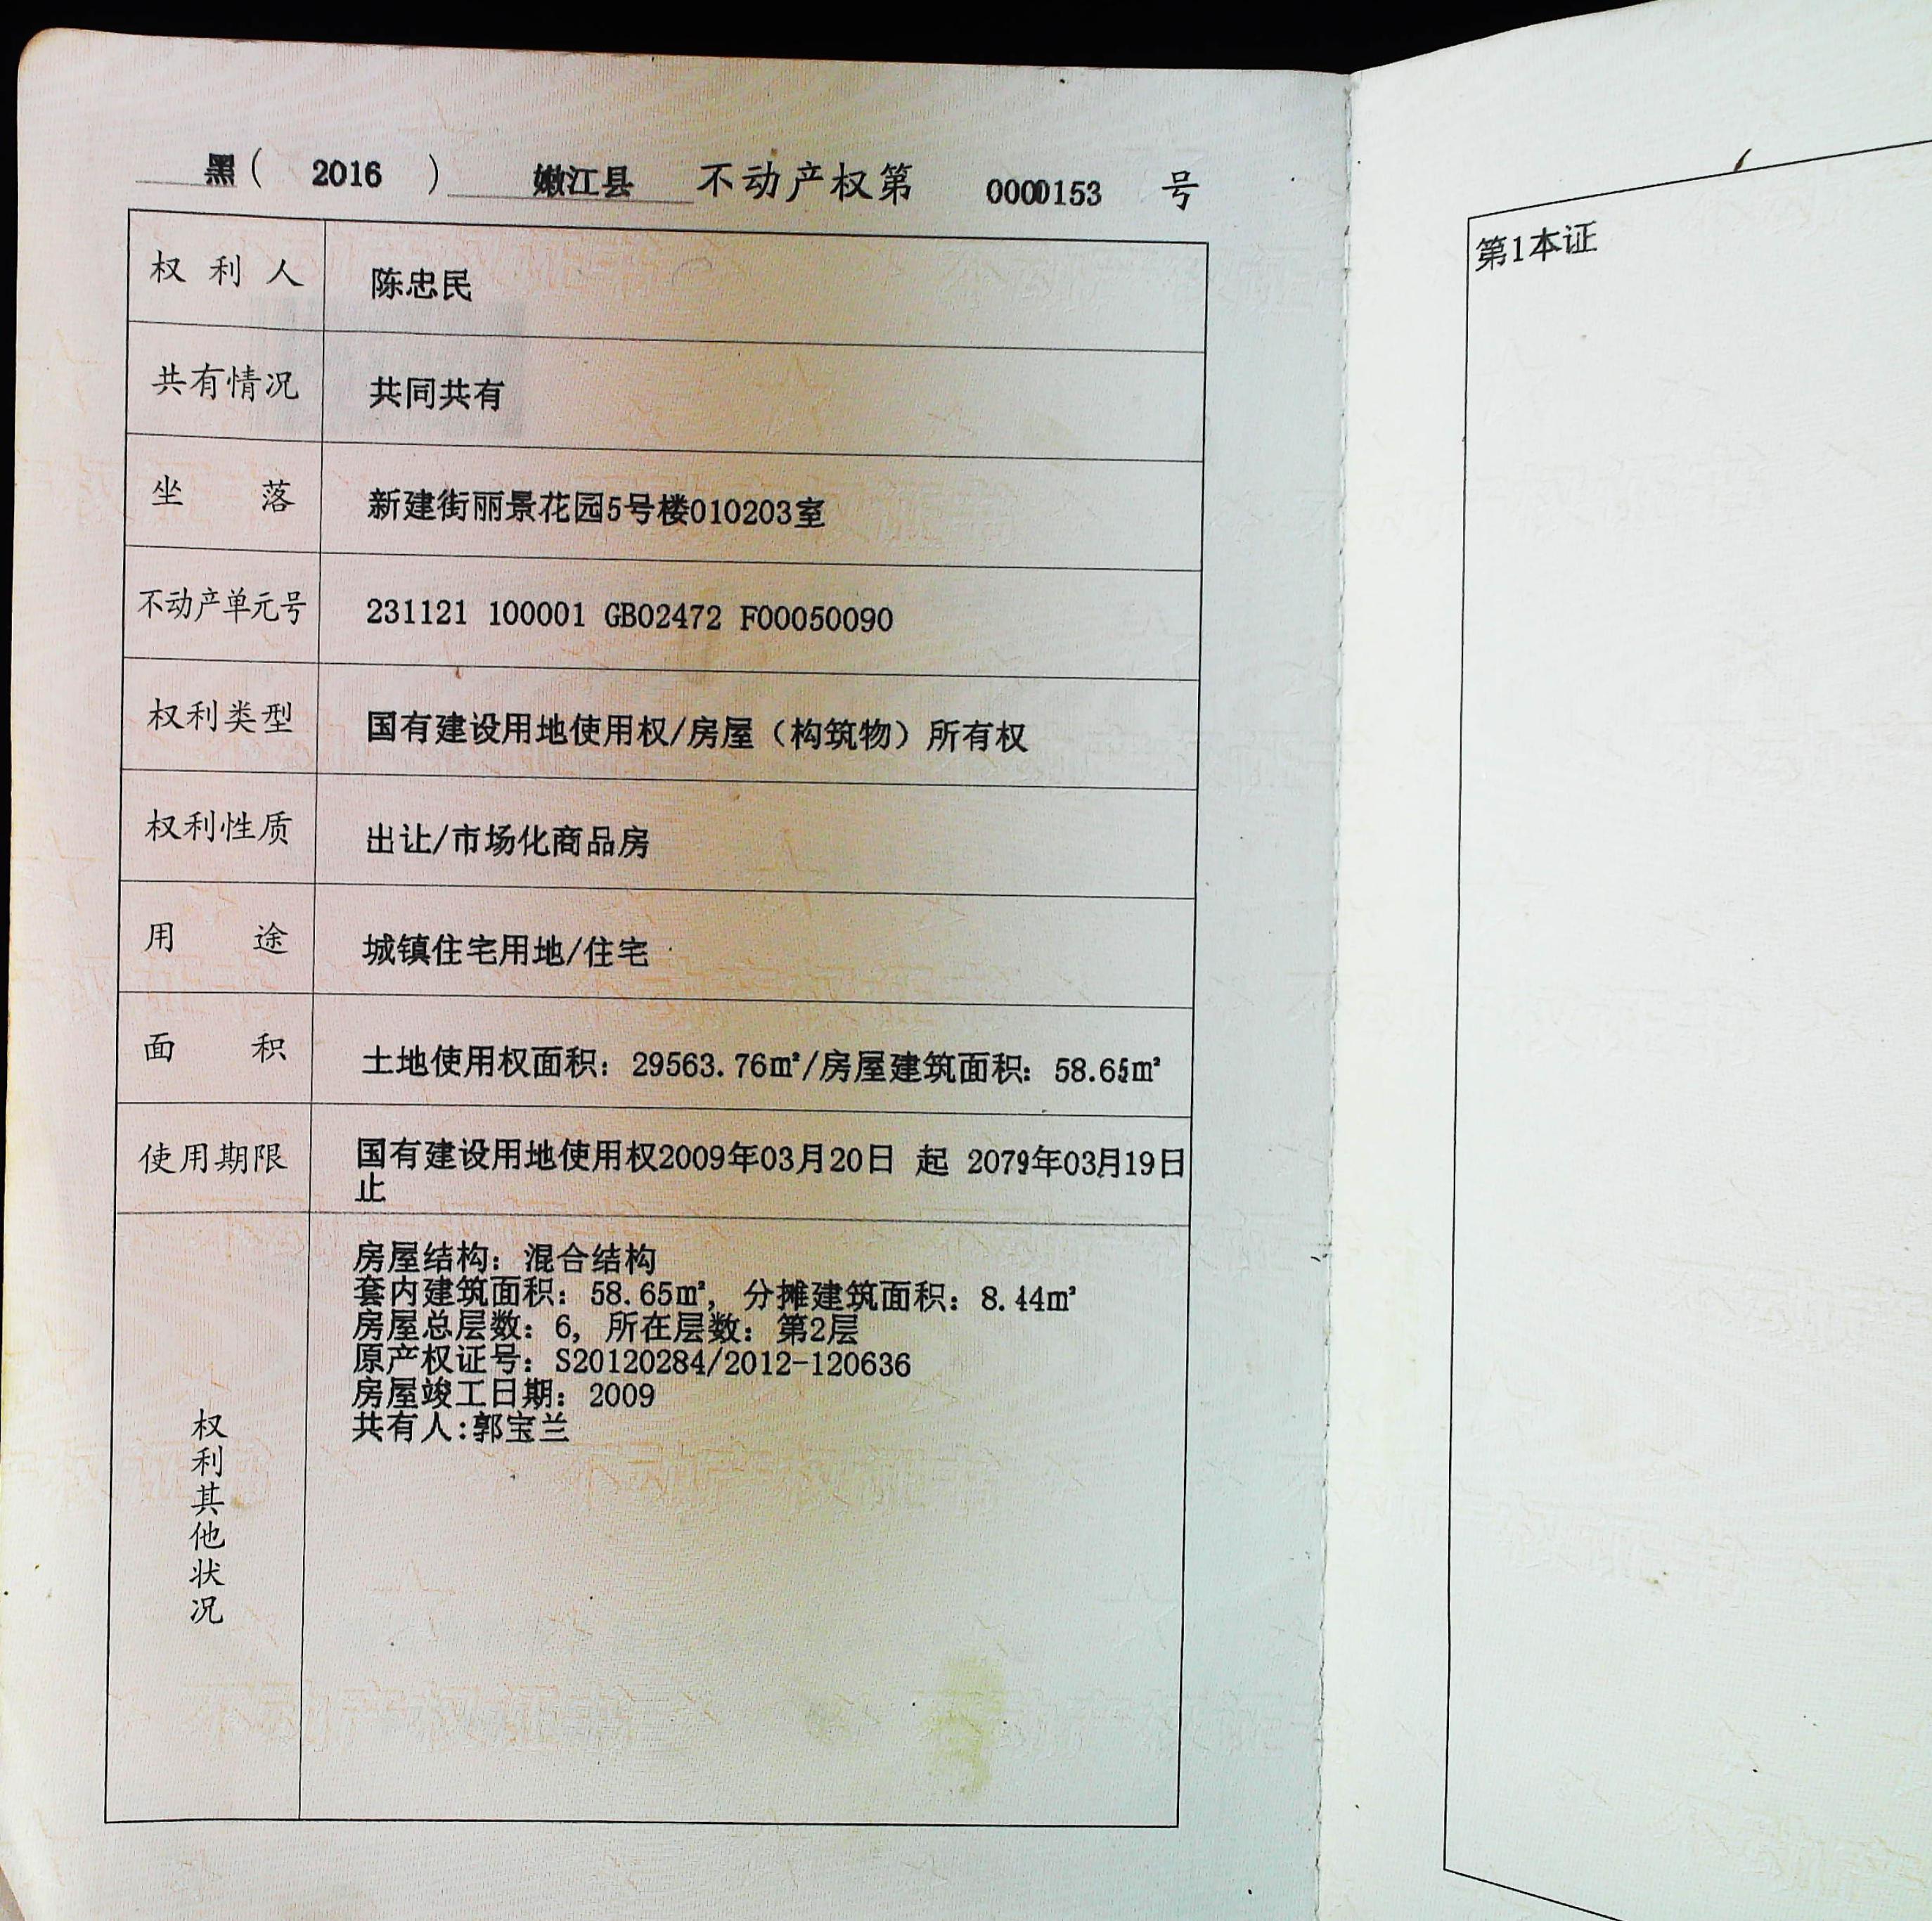 黑( 2016 ) 嫩江县 不动产权第 0000153 号
权利人 陈忠民
共有情况 共同共有
坐落 新建街丽景花园5号楼010203室
不动产单元号 231121 100001 GB02472 F00050090
权利类型 国有建设用地使用权/房屋（构筑物）所有权
权利性质 出让/市场化商品房
用途 城镇住宅用地/住宅
面积 土地使用权面积：29563.76㎡/房屋建筑面积：58.65㎡
使用期限 国有建设用地使用权2009年03月20日 起 2079年03月19日
止
权利其他状况
房屋结构：混合结构
套内建筑面积：58.65㎡，分摊建筑面积：8.44㎡
房屋总层数：6，所在层数：第2层
原产权证号：S20120284/2012-120636
房屋竣工日期：2009
共有人:郭宝兰
第1本证